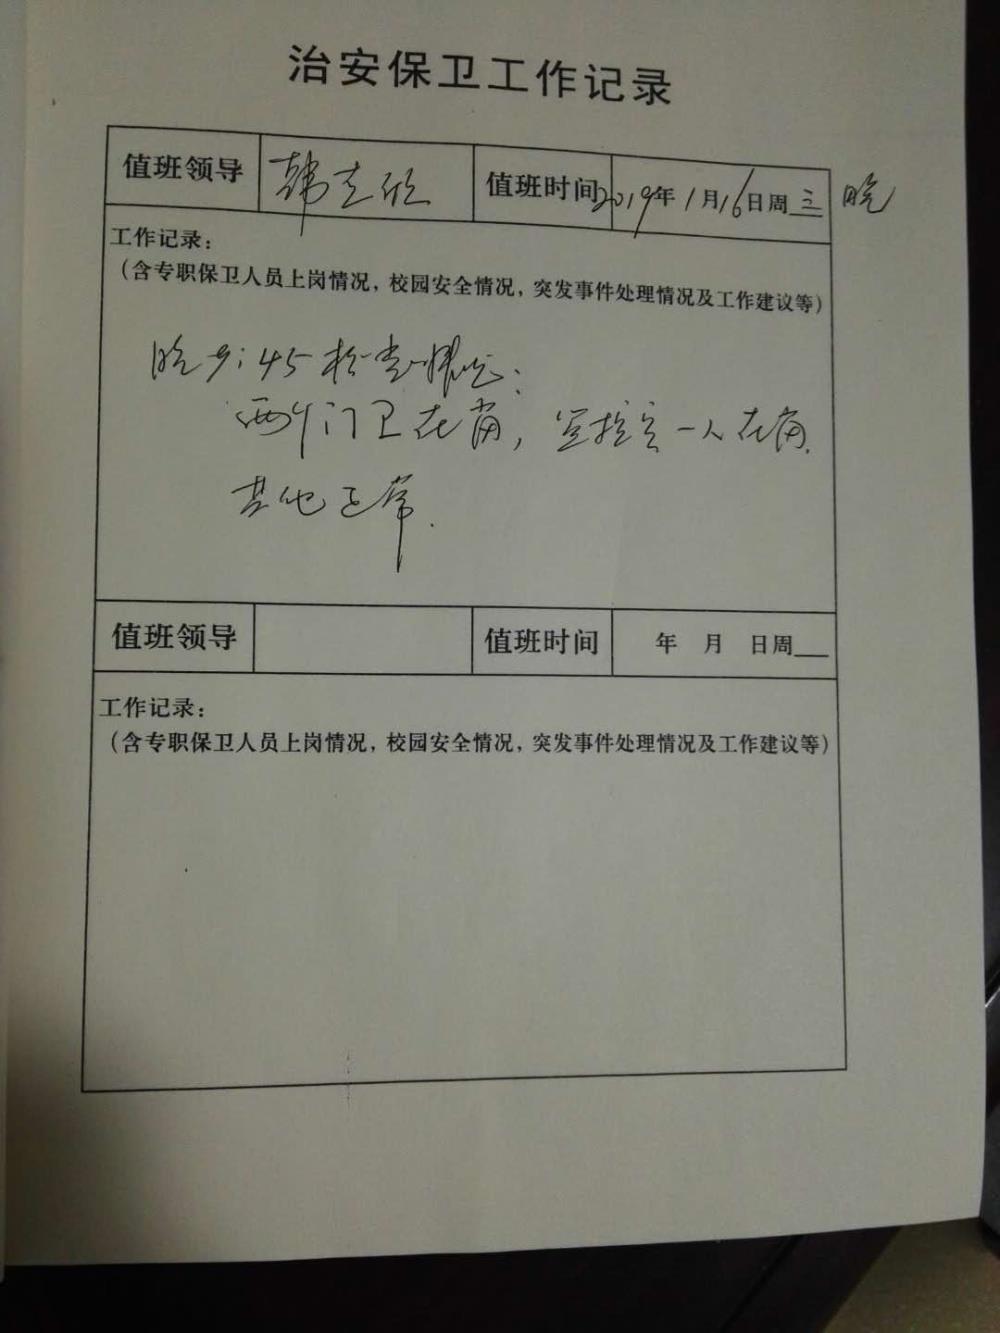 治安保卫工作记录
值班领导 韩志欣 值班时间 2019年1月16日周三 晚
工作记录：
（含专职保卫人员上岗情况，校园安全情况，突发事件处理情况及工作建议等）
晚9:45检查情况：
两个门卫在岗，监控室一人在岗.
其他正常.
值班领导 值班时间 年 月 日周
工作记录：
（含专职保卫人员上岗情况，校园安全情况，突发事件处理情况及工作建议等）